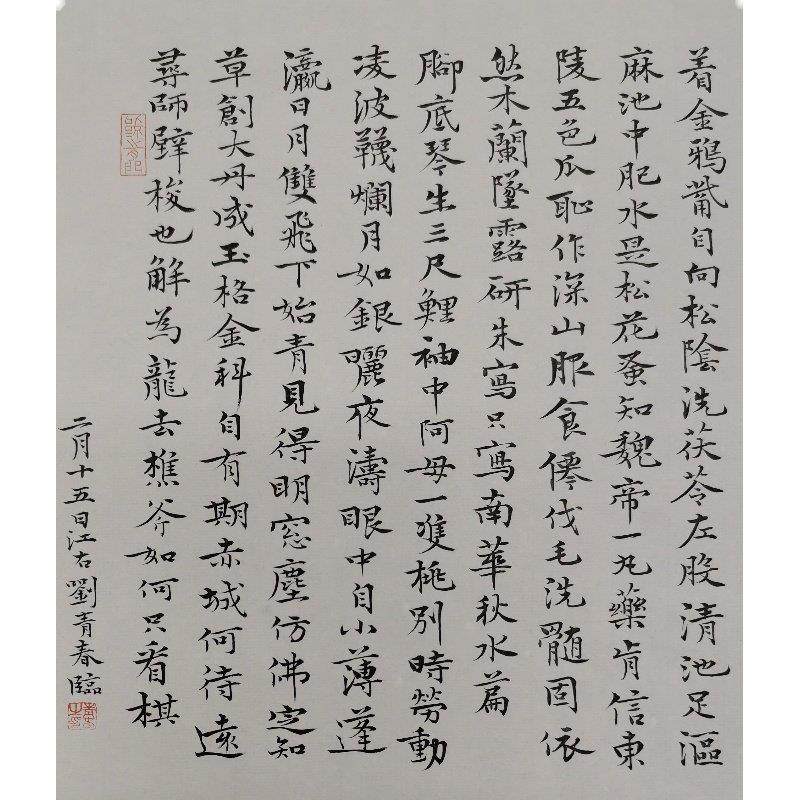 着金鴉觜自向松陰洗茯苓左股清池足漚
麻池中肥水是松花蚤知魏帝一丸藥肯信東
陵五色瓜恥作深山服食僊伐毛洗髓固依
然木蘭墜露研朱寫只寫南華秋水篇
腳底琴生三尺鯉袖中阿母一隻桃別時勞動
凌波襪爛月如銀曬夜濤眼中自小薄蓬
瀛日月雙飛下始青見得明窓塵仿佛定知
草創大丹成玉格金科自有期赤城何待遠
尋師壁梭也解為龍去樵斧如何只看棋
二月十五日江右劉青春臨